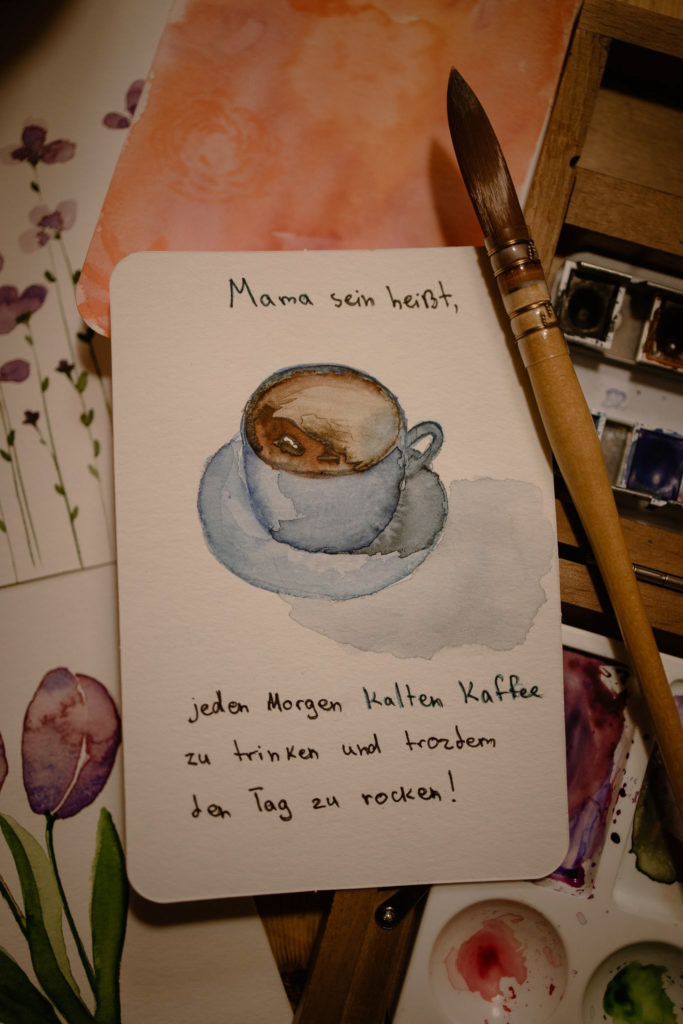 Mama sein heißt,
jeden Morgen kalten Kaffee
zu trinken und trozdem
den Tag zu rocken!